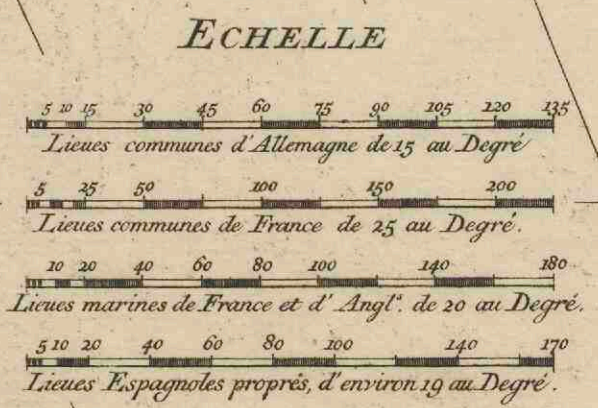 ECHELLE
5 10 15 30 45 60 75 90 105 120 135
Lieues communes d'Allemagne de 15 au Degré
5 25 50 100 150 200
Lieues communes de France de 25 au Degré.
10 20 40 60 80 100 140 180
Lieues marines de France et d'Angl.ª de 20 au Degré.
5 10 20 40 60 80 100 140 170
Lieues Espagnoles proprés, d'environ 19 au Degré.